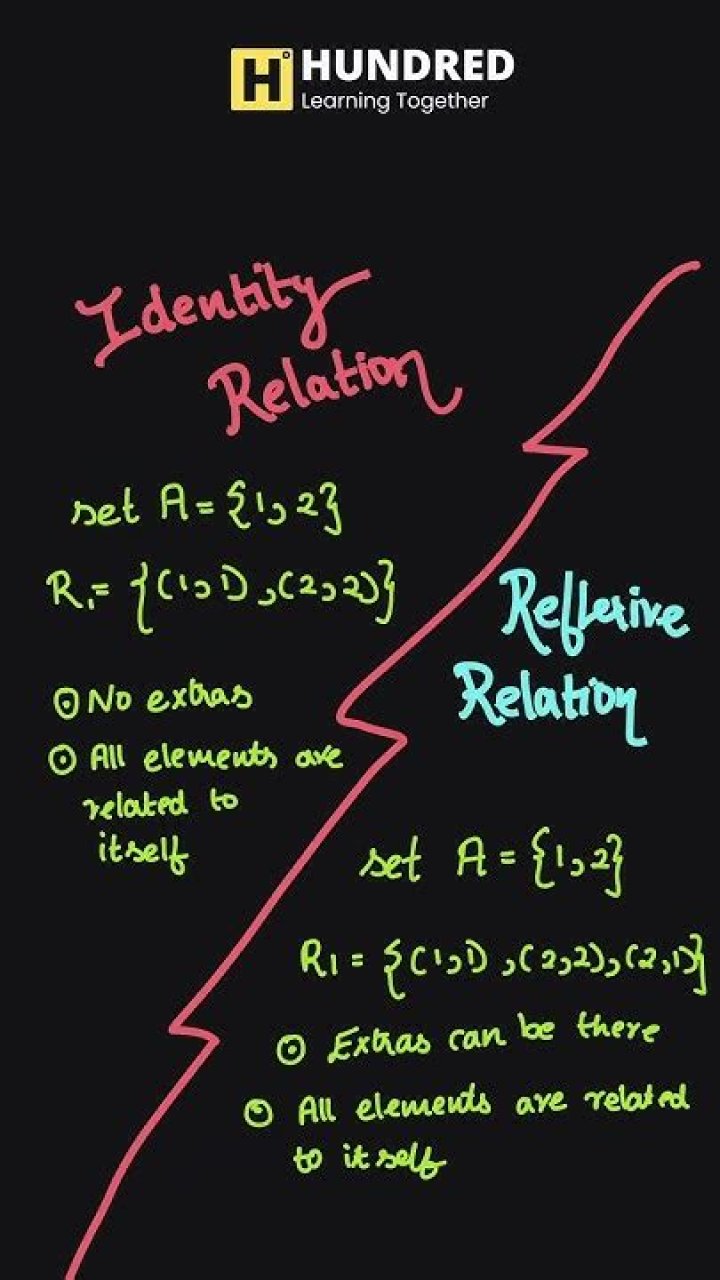 H HUNDRED
Learning Together
Identity
Relation
set A = {1, 2}
R₁ = {(1, 1), (2, 2)}
⊙ No extras
⊙ All elements are
related to
itself
Reflexive
Relation
set A = {1, 2}
R1 = {(1, 1), (2, 2), (2, 1)}
⊙ Extras can be there
⊙ All elements are related
to itself